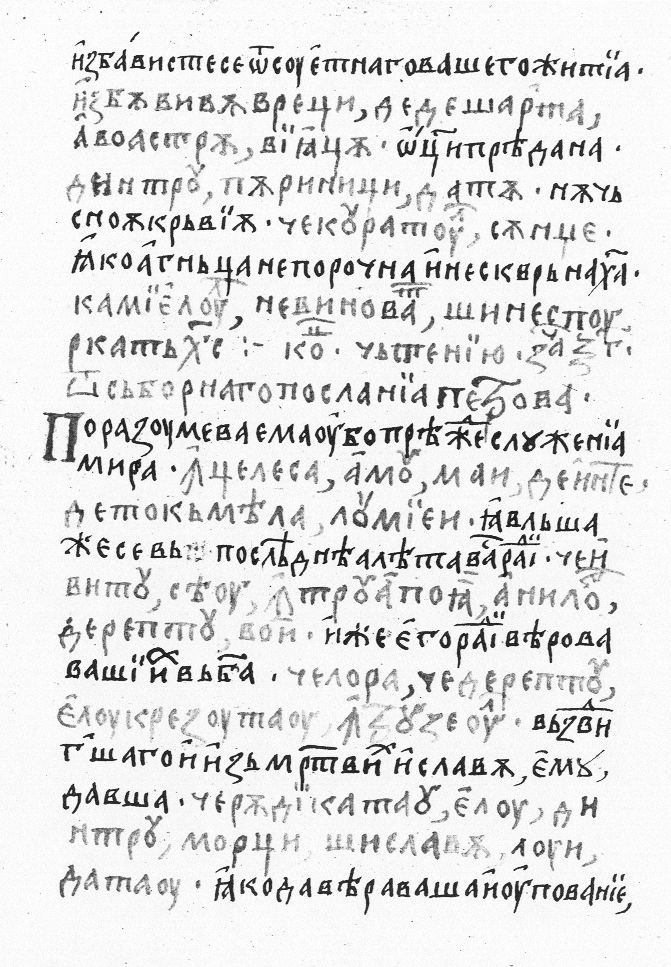 и҆збависте се ѿ соуетнаго вашего житїа ·
и҆збѫвивѫ вреци, де дешарта,
а҆воастрѫ, вїꙗ҆цѫ · ѿц҃и прѣдана ·
дентрꙋ, пѫриници, датѫ · нѫ чь
сноѫ крьвїѫ · че кꙋратоу҆л, сѫнце ·
ꙗ҆ко а҆гньца непорочна и҆ нескврьна х҃а ·
ка мїе҆лоул, невиноват, ши неспоу
ркать х҃с :~ ко҃ц · чьтенїю · за҃ч ѯ҃г ·
ѿ сьборнаго посланїа петрова ·
Поразоумеваема оу҆бо прѣжде сложенїа
мира · ꙟ҆целеса, а҆мꙋ, маи, деи҆нте,
де токьмѣла, лꙋмїеи · ꙗ҆вльша
же се вь послѣднѣа лѣта ва ради · че и҆
витꙋ, сѣоу, ꙟ҆трꙋ а҆поꙗ, а҆нилѡр,
дерептꙋ, вои҆ · и҆же е҆го ради вѣрова
ваши и҆х вь б҃а · че лора, че дерептꙋ,
е҆лоу крезоутаоу, ꙟ҆дꙋмнезеоу҆ · вьздви
гшаго и҆ и҆зь мртвих и҆ славѫ, е҆мꙋ,
давша · че рѫдїкатаꙋ, е҆лоу, ди
нтрꙋ, морци, ши славѫ, лоуи,
датаоу · ꙗ҆ко да вѣра ваша и҆ оу҆пованїе,